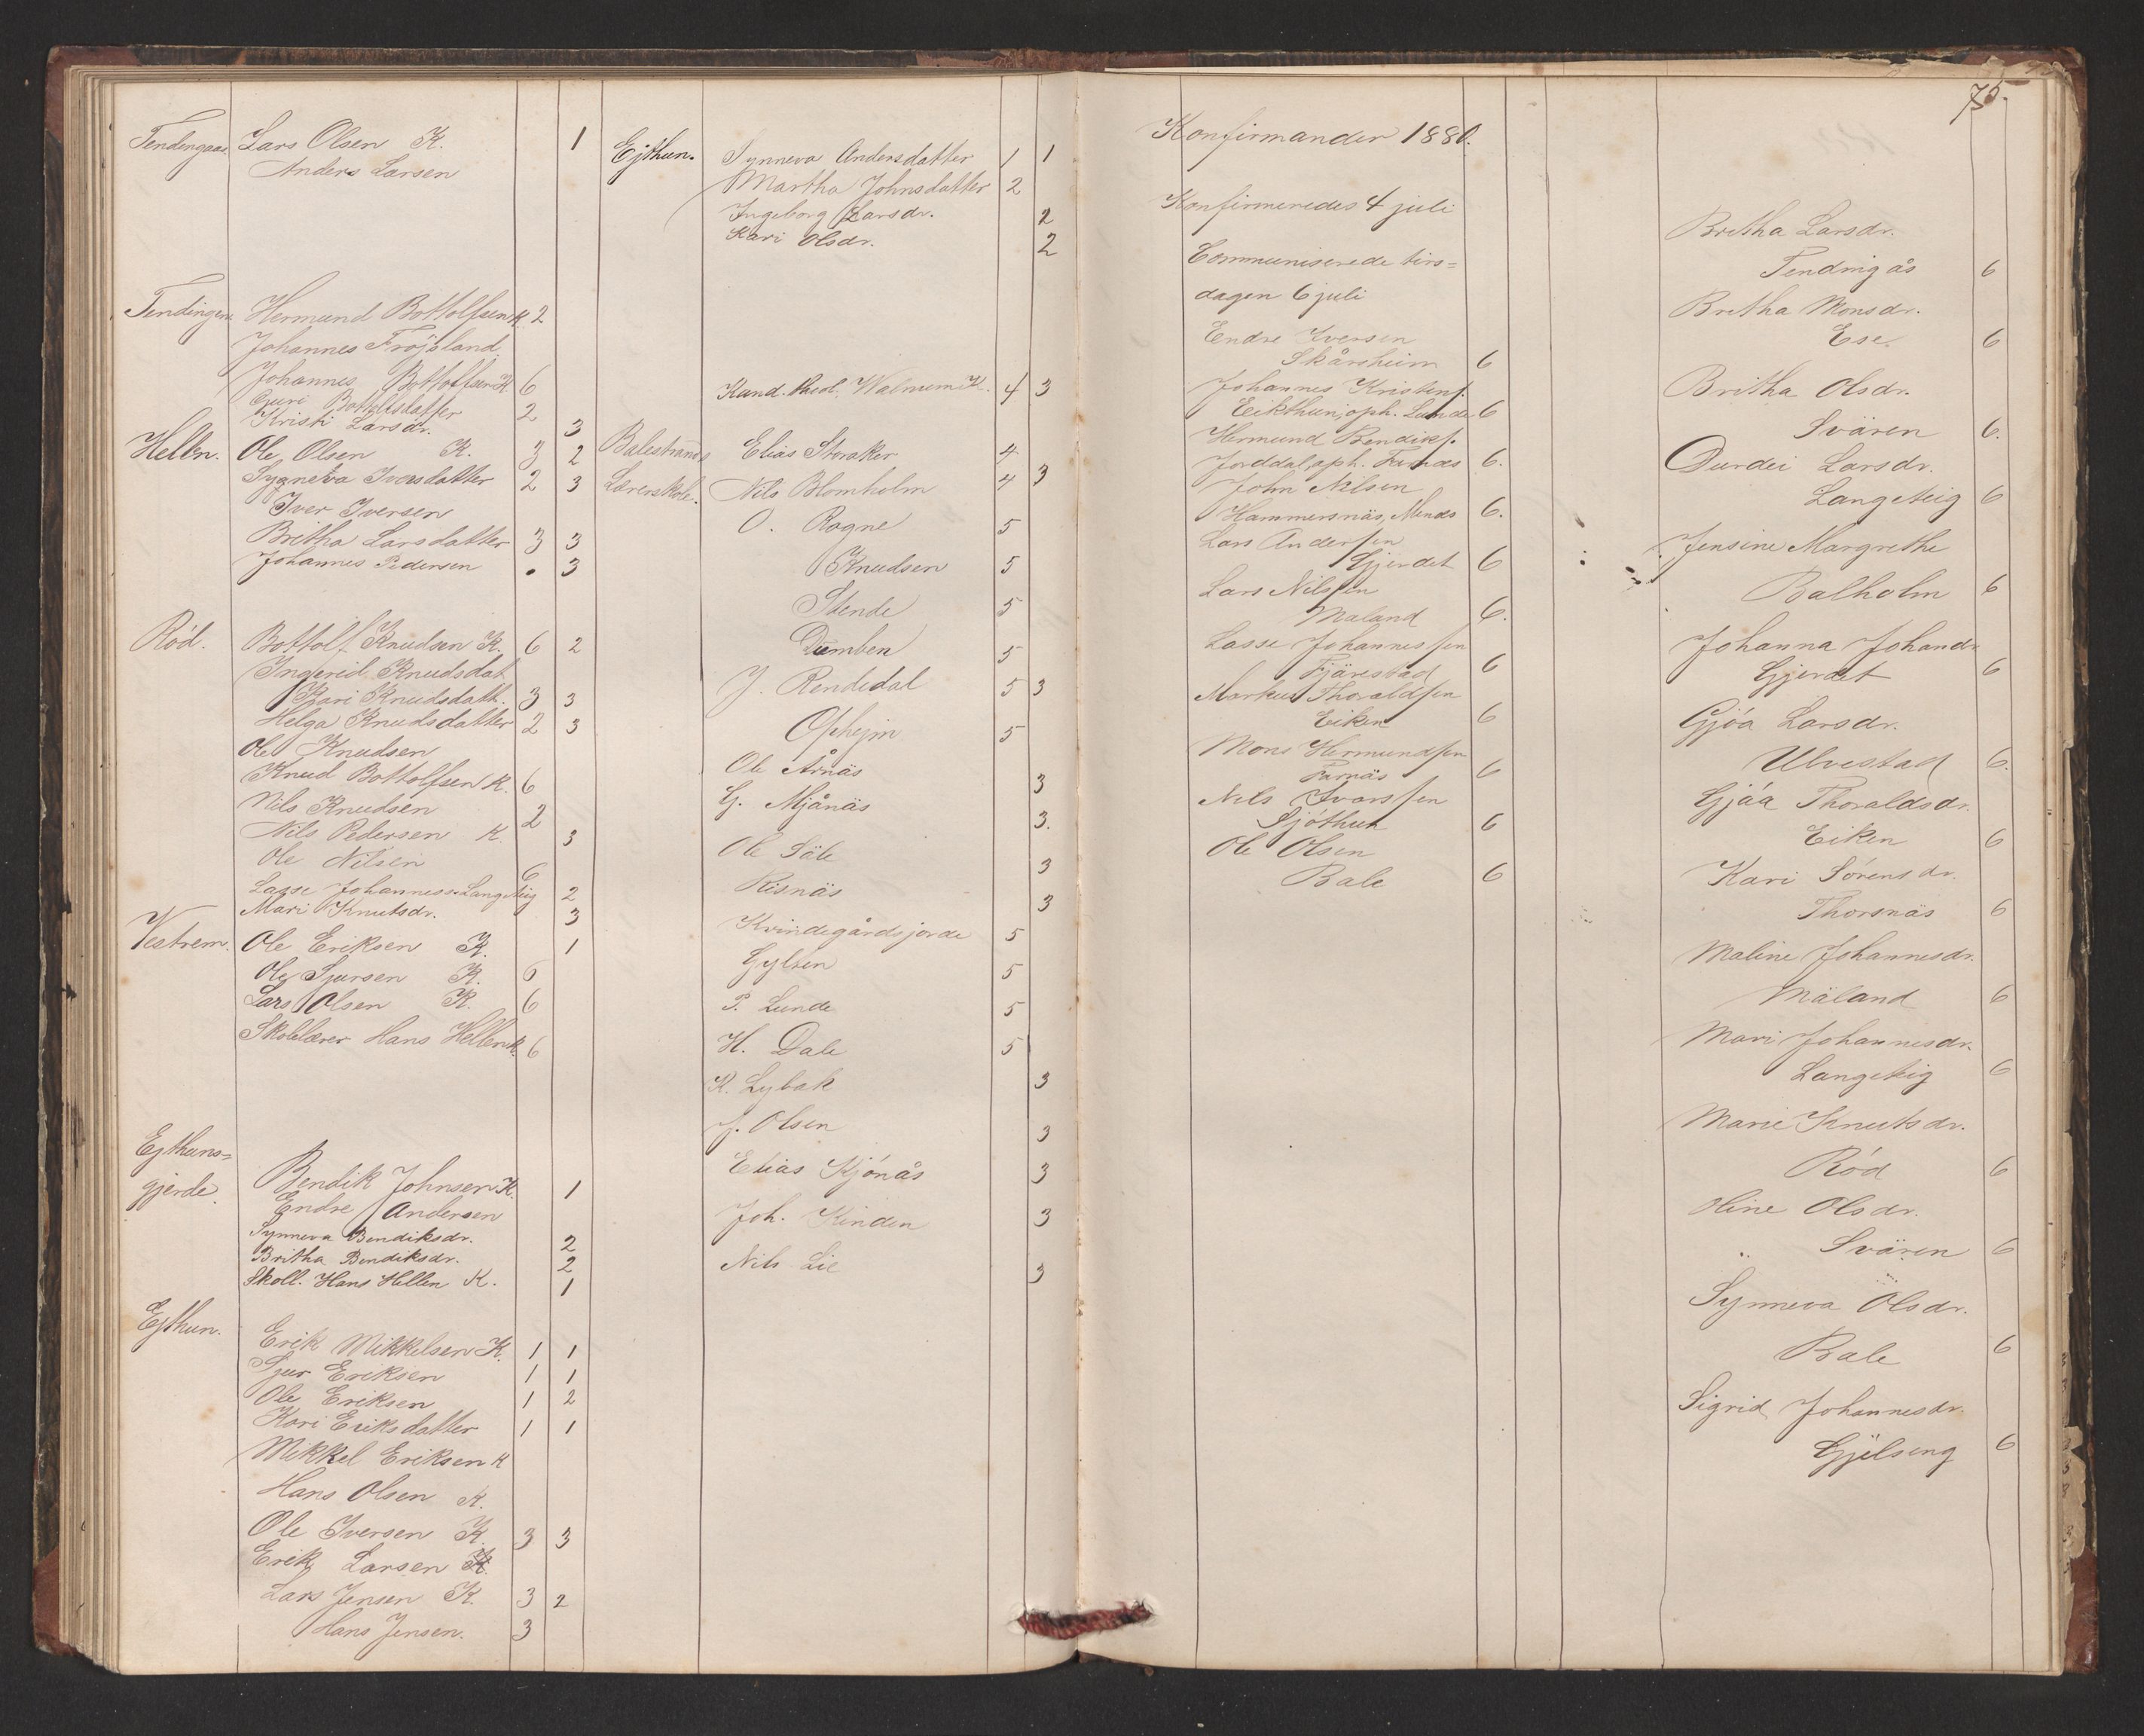 Tendengaas Lars Olsen K. 1
Anders Larsen
Tendingen Hermund Bottolfsen K. 2
Johannes Fröjsland
Johannes Bottolfsen K 6
Guri Bottolfsdatter 2
Kristi Larsdr. 3
Hellen. Ole Olsen K. 3 2
Synneva Iversdatter 2 3
Iver Iversen
Britha Larsdatter 3 3
Johannes Pedersen . 3
Röd. Bottolf Knudsen K. 6 2
Ingerid Knudsdat
Kari Knudsdatt. 3 3
Helga Knudsdatter 2 3
Ole Knudsen
Knud Bottolfsen K. 6
Nils Knudsen 2
Nils Pedersen K. 3
Ole Nilsen 6
Lasse Johanness. Langeteig 2
Mari Knutsdr. 3
Vestrem. Ole Eriksen K. 1
Ole Sjursen K. 6
Lars Olsen K. 6
Skolelærer Hans Hellen K. 6
Ejthuns=
gjerde. Bendik Johnsen K. 1
Endre Andersen
Synneva Bendiksdr. 2
Britha Bendiksdr. 2
Skoll. Hans Hellen K. 1
Ejthun.
Erik Mikkelsen K. 1 1
Sjur Eriksen 1 1
Ole Eriksen 1 2
Kari Eriksdatter 1 1
Mikkel Eriksen K
Hans Olsen K.
Ole Iversen K. 3 3
Erik Larsen K.
Lars Jensen K. 3 2
Hans Jensen. 3
Ejthun. Synneva Andersdatter 1 1
Martha Johnsdatter 2
Ingeborg Larsdr. 2
Kari Olsdr. 2
Kand. theol. Walnum K. 4 3
Balestrands Elias Storaker 4
Lærerskole. Nils Blomholm 4 3
O. Rogne 5
Knudsen 5
Stende 5
Dumben 5
J. Rendedal 5 3
Opheim 5
Ole Årnäs 3
G. Mjånäs 3.
Ole Säle 3
Risnäs 3
Kvindegårdsjorde 5
Gylsen 5
P. Lunde 5
H. Dale 5
R. Lybak 3
J. Olsen 3
Elias Kjönås 3
Joh. Kinden 3
Nils Lie 3
75.
Konfirmander 1880.
Konfirmeredes 4 juli
Communiserede tirs=
dagen 6 juli
Endre Iversen
Skårsheim 6
Johannes Kristens.
Eikthun, oph. Lunde 6
Hermund Bendiks.
Jorddal, oph. Farnäs 6.
John Nilsen
Hammersnäs, Menäs 6.
Lars Anderssen
Gjerdet 6
Lars Nilssen
Maland 6.
Lasse Johannessen
Fjärestad 6
Markus Thoraldsen
Eiken 6
Mons Hermundsen
Farnäs 6
Nils Ivarssen
Sjöthun 6
Ole Olsen
Bale 6
Britha Larsdr.
Tendingås 6
Britha Monsdr.
Ese. 6
Britha Olsdr.
Svären 6.
Durdei Larsdr.
Langeteig 6
Jensine Margrethe
Balholm 6
Johanna Johansdr.
Gjerdet 6
Gjöa Larsdr.
Ulvestad 6.
Gjöa Thoraldsdr.
Eiken 6
Kari Sörensdr.
Thorsnäs 6
Maline Johannesdr.
Mäland 6
Mari Johannesdr.
Langeteig 6
Marie Knutsdr.
Röd 6
Oline Olsdr.
Svären 6
Synneva Olsdr.
Bale 6
Sigrid Johannesdr.
Gjelseng 6